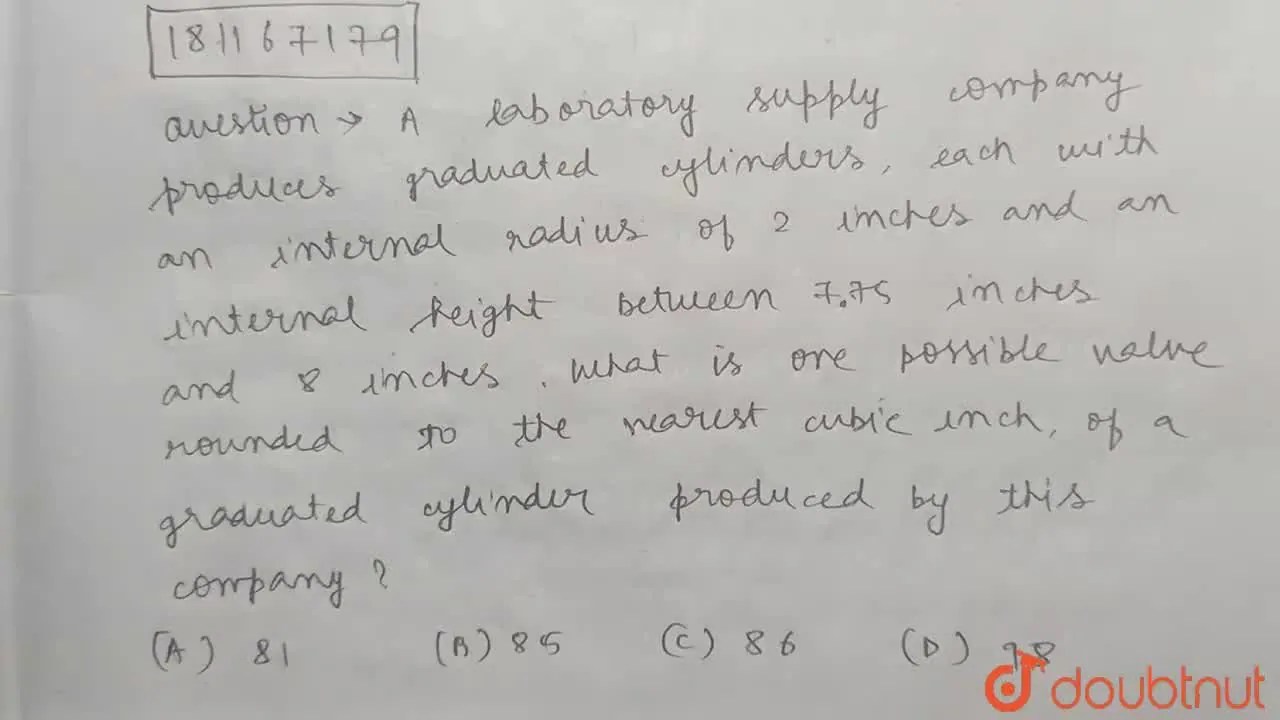 181167179
Question → A laboratory supply company
produces graduated cylinders, each with
an internal radius of 2 inches and an
internal height between 7.75 inches
and 8 inches. what is one possible value
rounded to the nearest cubic inch, of a
graduated cylinder produced by this
company?
(A) 81 (B) 85 (C) 86 (D) 98
doubtnut